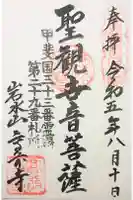 奉拝 令和五年八月十日
聖観世音菩薩
甲斐国三十三番霊場
第二十九番札所
岩水山